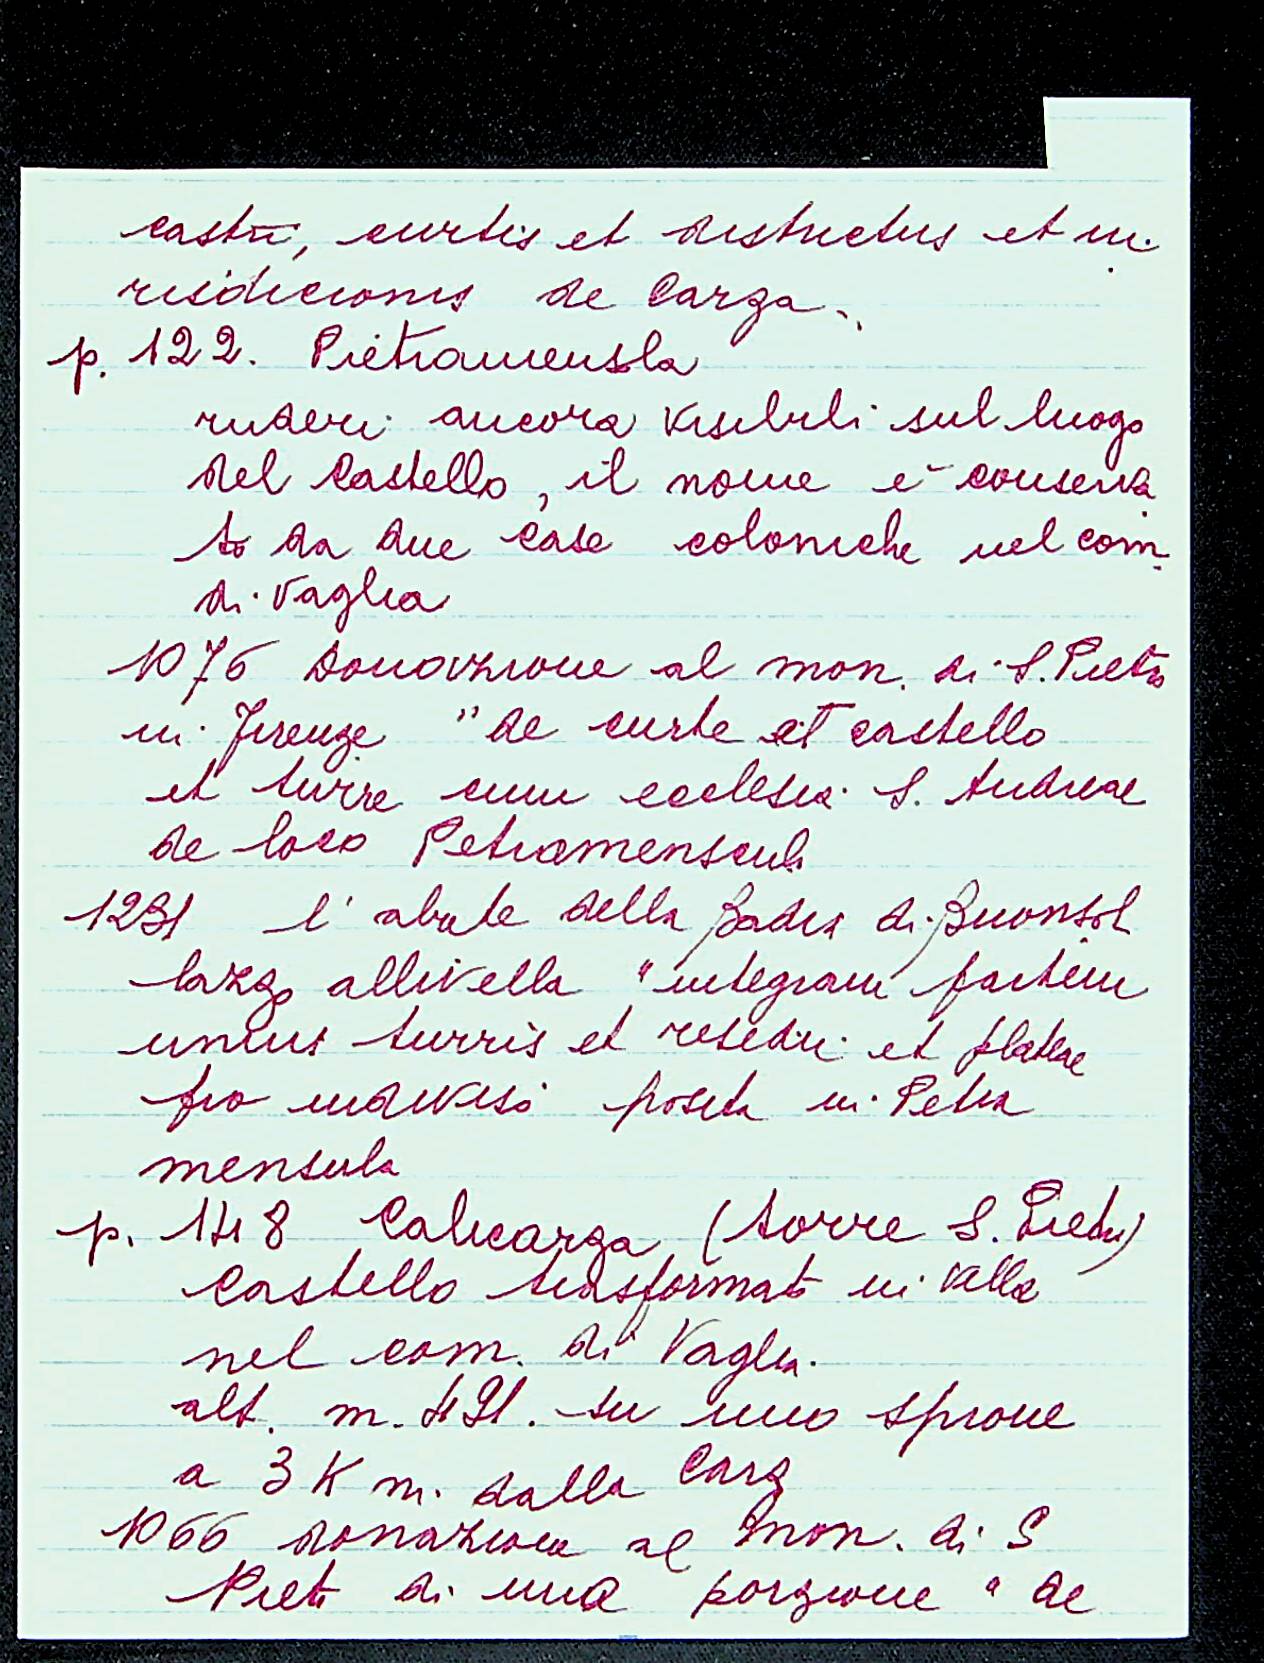 castri, curtis et districtus et iu.
risdicionis de Carza.
p. 122. Pietramensola
ruderi ancora visibili sul luogo
del Castello, il nome è conserva
to da due case coloniche nel com.
di Vaglia
1076 donazione al mon. di S. Pietro
in Firenze "de curte et castello
et turre cum ecclesia S. Andreae
de loco Petramensculi
1231 l'abate della Badia di Buonsol
lazzo allivella "integram partem
unius turris et resedii et plateae
pro indiviso posita in Petra
mensula
p. 148 Calicarza (torre S. Pietro)
Castello trasformato in villa
nel com. di Vaglia.
alt. m. 491. su uno sprone
a 3 Km. dalla Carza
1066 donazione al mon. di S
Pietro di una porzione "de